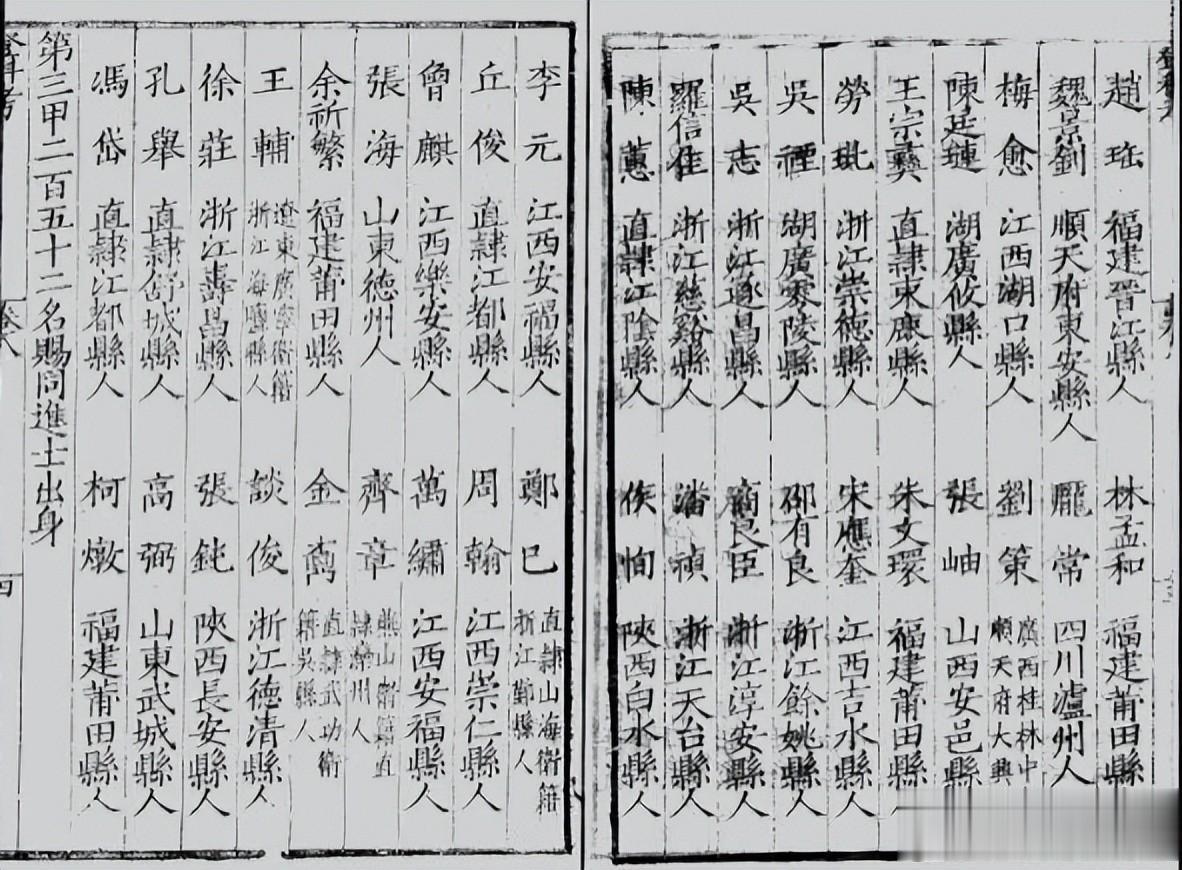 趙珤 福建晉江縣人 林孟和 福建莆田縣
魏景釗 順天府東安縣人 龎常 四川瀘州人
梅愈 江西湖口縣人 劉策 廣西桂林中 順天府大興
陳廷璉 湖廣攸縣人 張岫 山西安邑縣
王宗彝 直隷束鹿縣人 朱文環 福建莆田縣
勞玭 浙江崇德縣人 宋應奎 江西吉水縣人
吳禋 湖廣零陵縣人 邵有良 浙江餘姚縣人
吳志 浙江遂昌縣人 商良臣 浙江淳安縣人
羅信佳 浙江慈谿縣人 潘禎 浙江天台縣人
陳蕙 直隷江陰縣人 侯恂 陝西白水縣人
李元 江西安福縣人 鄭巳 直隷山海衛籍 浙江鄞縣人
丘俊 直隷江都縣人 周翰 江西崇仁縣人
曾麒 江西樂安縣人 萬繡 江西安福縣人
張海 山東德州人 齊章 燕山衛籍直隷州人
余祈繁 福建莆田縣人 金 直隷武功衛籍吳縣人
王輔 遼東廣寧衛籍 浙江海鹽縣人 談俊 浙江德清縣人
徐莊 浙江壽昌縣人 張鈍 陝西長安縣人
孔舉 直隷舒城縣人 高弼 山東武城縣人
馮岱 直隷江都縣人 柯燉 福建莆田縣人
第三甲二百五十二名賜同進士出身
卷八
四